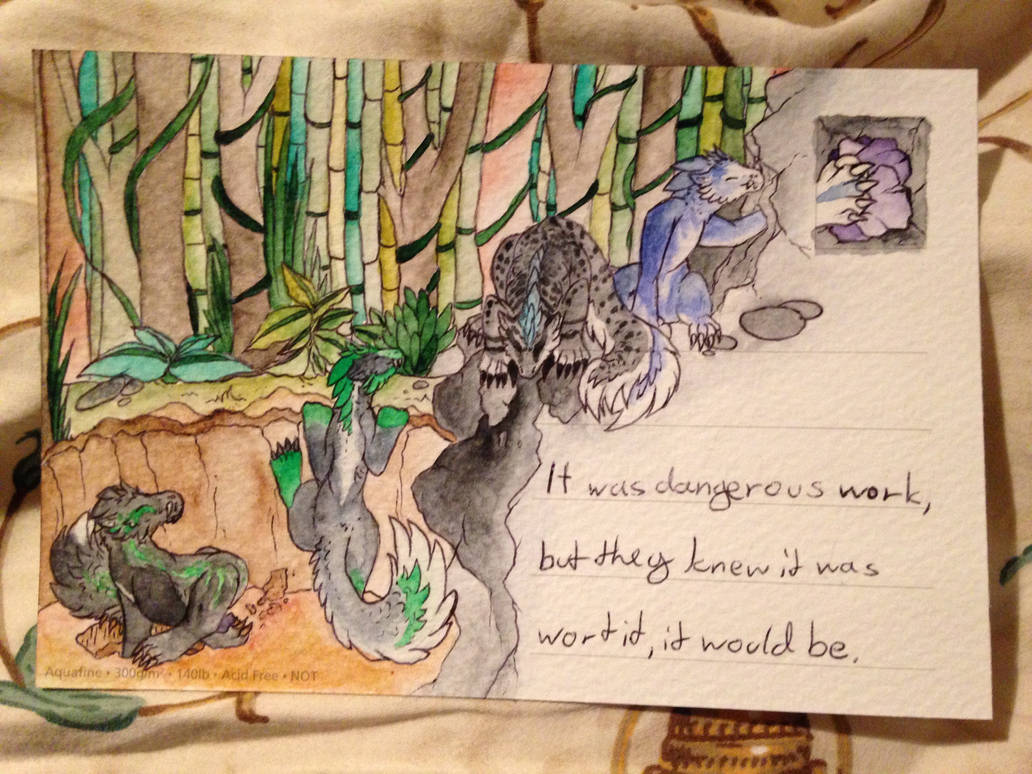 It was dangerous work,
but they knew it was
wortit, it would be.
Aquafine • 300g/m² • 140lb • Acid Free • NOT